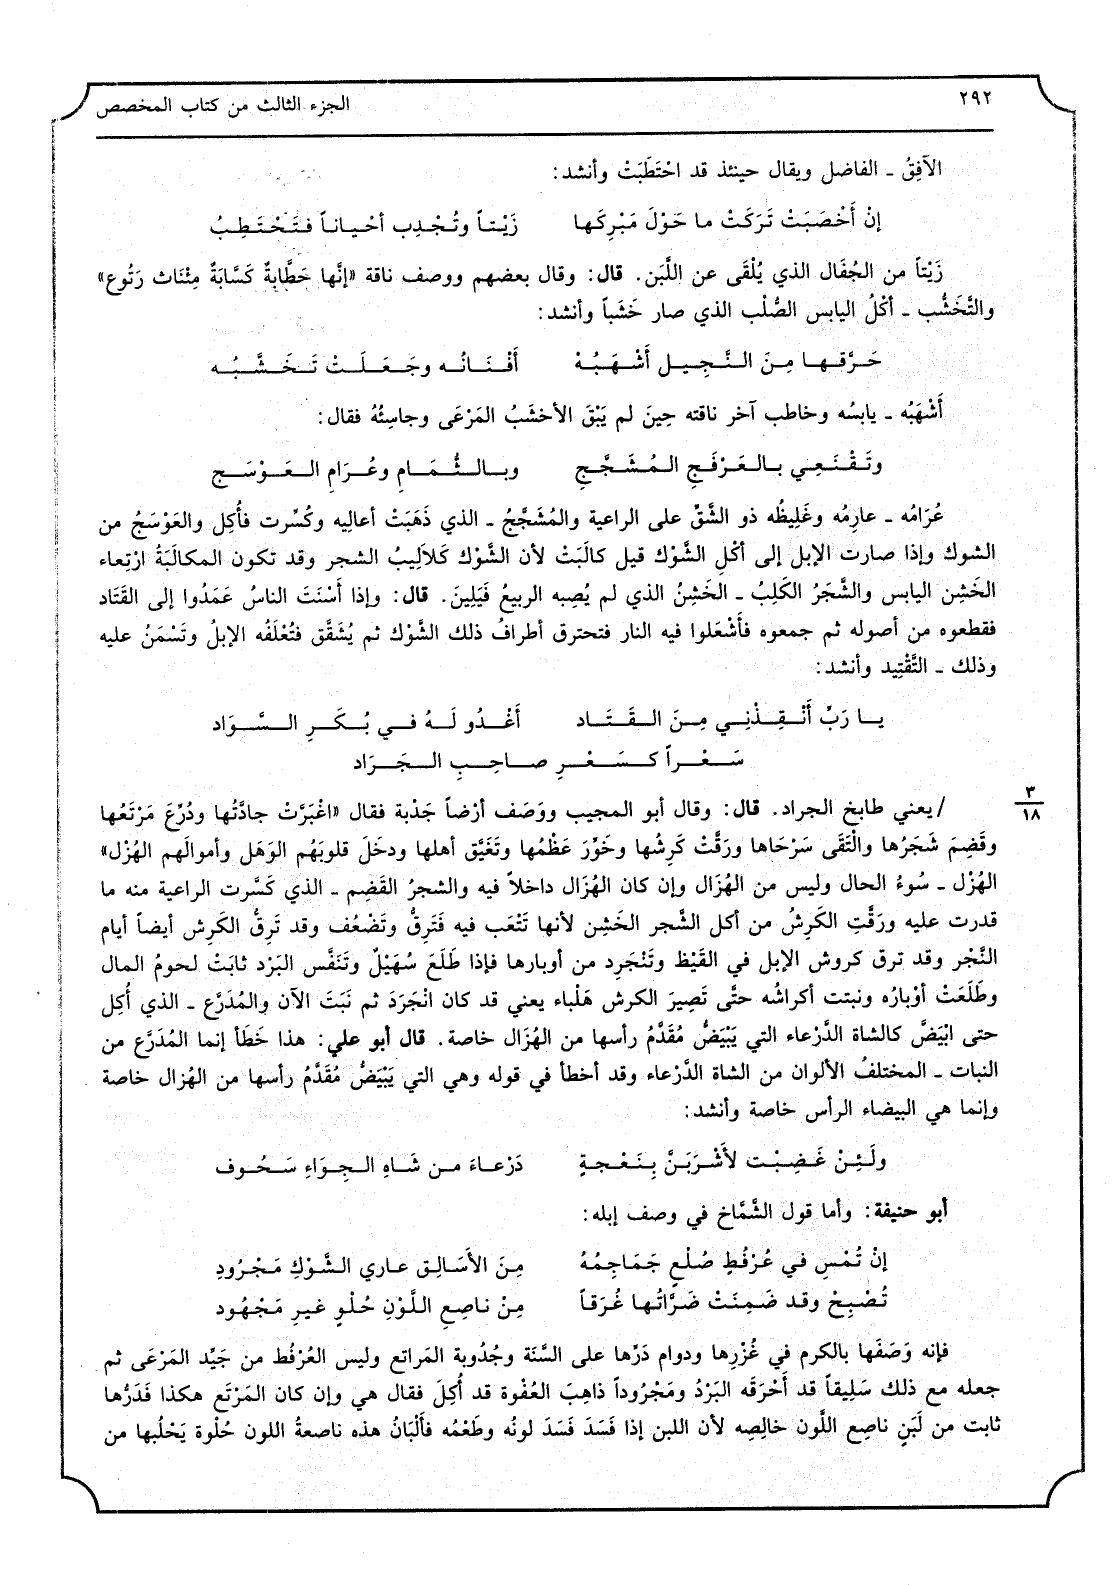 ٢٩٢ الجزء الثالث من كتاب المخصص
الآفِقُ ـ الفاضل ويقال حينئذ قد احْتَطَبَتْ وأنشد:
إنْ أَخْصَبَتْ تَرَكَتْ ما حَوْلَ مَبْرِكَها زَيْتاً وتُجْدِب أحْياناً فتَحْتَطِبُ
زَيْتاً من الجُفَال الذي يُلْقَى عن اللَّبَن. قال: وقال بعضهم ووصف ناقة «إنَّها حَطَّابةٌ كَسَّابَةٌ مِثْناث رَتُوع»
والتَّخَشُّب ـ أكْلُ اليابس الصُّلْب الذي صار خَشَباً وأنشد:
حَرَّقها مِنَ النَّجِيل أَشْهَبُهْ أَفْنَانُه وجَعَلَتْ تَخَشَّبُه
أَشْهَبُه ـ يابسُه وخاطب آخر ناقته حِينَ لم يَبْقَ الأخشَبُ المَرْعَى وجاسِئُهُ فقال:
وتَقْنَعِي بالعَرْفَجِ المُشَجَّجِ وبالثُّمَامِ وعُرَامِ العَوْسَجِ
عُرَامُه ـ عارِمُه وغَلِيظُه ذو الشَّقِّ على الراعية والمُشَجَّجُ ـ الذي ذَهَبَتْ أعاليه وكُسِّرت فأُكِل والعَوْسَجُ من
الشوك وإذا صارت الإبل إلى أكْلِ الشَّوْك قيل كالَبَتْ لأن الشَّوْك كَلاَلِيبُ الشجر وقد تكون المكالَبَةُ ارْتِعاء
الخَشِن اليابس والشَّجَرُ الكَلِبُ ـ الخَشِنُ الذي لم يُصِبه الربيعُ فَيَلِينَ. قال: وإذا أسْنَتَ الناسُ عَمَدُوا إلى القَتَاد
فقطعوه من أصوله ثم جمعوه فأَشْعَلوا فيه النار فتحترق أطرافُ ذلك الشَّوْك ثم يُشَقَّق فتُعْلَفُه الإبلُ وتَسْمَنُ عليه
وذلك ـ التَّقْتِيد وأنشد:
يا رَبِّ أَنْقِذْنِي مِنَ القَتَاد أَغْدُو لَهُ في بُكَرِ السَّوَاد
سَعْراً كسَعْرِ صاحِبِ الجَرَاد
٣
١٨
/ يعني طابخ الجراد. قال: وقال أبو المجيب ووَصَف أرْضاً جَدْبة فقال «اغْبَرَّتْ جادَّتُها ودُرِّعَ مَرْتَعُها
وقَضِمَ شَجَرُها والْتَقَى سَرْحَاها ورَقَّتْ كَرِشُها وخَوِّرَ عَظْمُها وتَغَيَّق أهلها ودخَلَ قلوبَهُم الوَهَل وأموالَهم الهُزْل»
الهُزْل ـ سُوءُ الحال وليس من الهُزَال وإن كان الهُزَال داخلاً فيه والشجرُ القَضِم ـ الذي كَسَّرت الراعية منه ما
قدرت عليه ورَقَّتِ الكَرِشُ من أكل الشَّجر الخَشِن لأنها تَتْعَب فيه فَتَرِقُّ وتَضْعُف وقد تَرِقُّ الكَرِش أيضاً أيام
النَّجْر وقد ترق كروش الإبل في القَيْظ وتَنْجَرِد من أوبارها فإذا طَلَعَ سُهَيْلٌ وتَنَفَّس البَرْد ثابَتْ لحومُ المال
وطَلَعَتْ أوْبارُه ونبتت أكراشُه حتَّى تَصِيرَ الكرش هَلْباء يعني قد كان انْجَرَدَ ثم نَبَتَ الآن والمُدَرَّع ـ الذي أُكِل
حتى ابْيَضَّ كالشاة الدَّرْعاء التي يَبْيَضُّ مُقَدَّمُ رأسها من الهُزَال خاصة. قال أبو علي: هذا خَطَأ إنما المُدَرَّع من
النبات ـ المختلفُ الألوان من الشاة الدَّرْعاء وقد أخطأ في قوله وهي التي يَبْيَضُّ مُقَدَّمُ رأسها من الهُزال خاصة
وإنما هي البيضاء الرأس خاصة وأنشد:
ولَئِنْ غَضِبْت لأَشْرَبَنَّ بِنَعْجةٍ دَرْعاءَ من شَاهِ الجِوَاءِ سَحُوف
أبو حنيفة: وأما قول الشَّمَّاخ في وصف إبله:
إنْ تُمْسِ في عُرْفُطٍ صُلْعٍ جَمَاجِمُهُ مِنَ الأَسَالِق عاري الشَّوْكِ مَجْرُودِ
تُصْبِحْ وقد ضَمِنَتْ ضَرَّاتُها غُرَقاً مِنْ ناصِعِ اللَّوْنِ حُلْوٍ غيرِ مَجْهُود
فإنه وَصَفَها بالكرم في غُزْرِها ودوام دَرِّها على السَّنَة وجُدُوبة المَراتع وليس العُرْفُط من جَيِّد المَرْعَى ثم
جعله مع ذلك سَلِيقاً قد أَحْرَقَه البَرْدُ ومَجْرُوداً ذاهِبَ العُفْوة قد أُكِلَ فقال هي وإن كان المَرْتَع هكذا فَدَرُّها
ثابت من لَبَنٍ ناصِع اللَّون خالِصِه لأن اللبن إذا فَسَدَ فَسَدَ لونُه وطَعْمُه فأَلْبَانُ هذه ناصعةُ اللون حُلْوة يَحْلُبها من